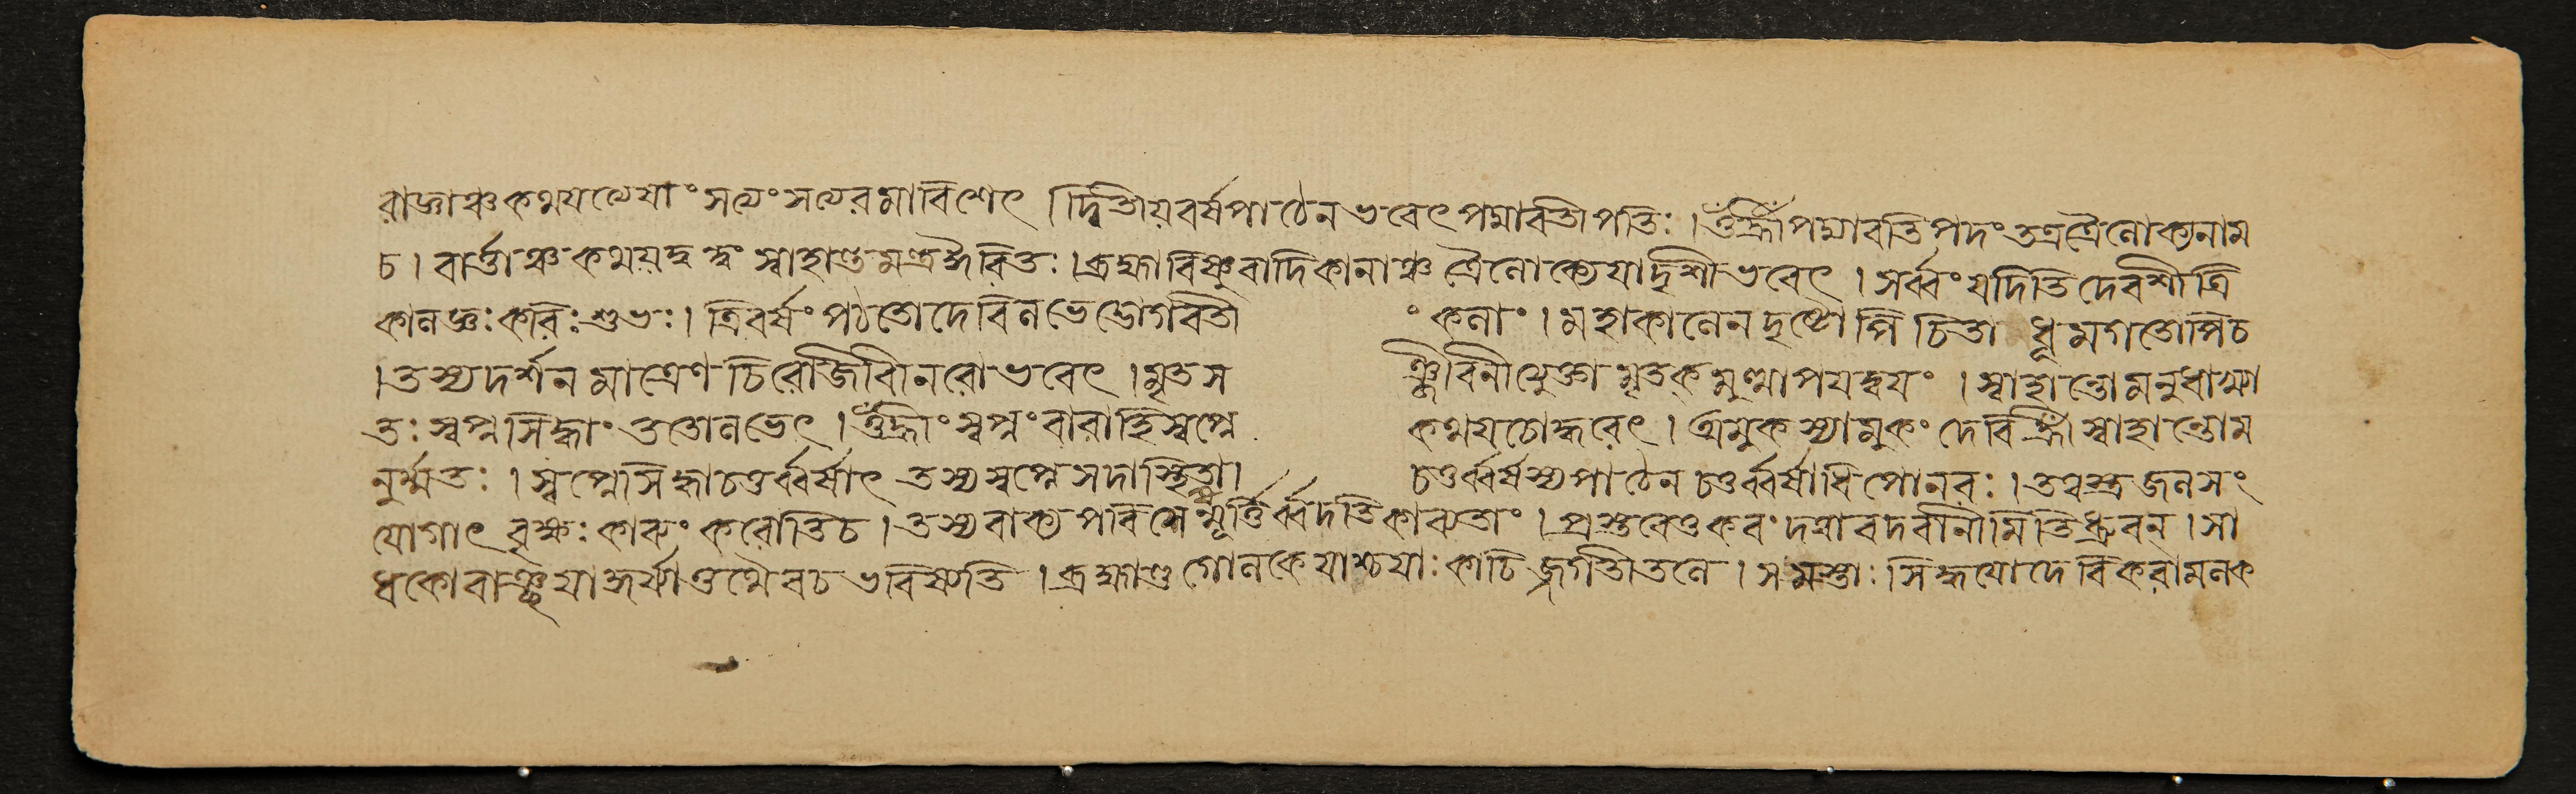 রাজ্ঞাঞ্চকথযত্যেষাং সত্যং সত্যরমাবিশেৎ । দ্বিতীয়বর্ষপাঠেন ভবেৎ পদ্মাবতীপতিঃ । ওঁ হ্রীঁ পদ্মাবতিপদং ততস্ত্রৈলোক্যনাম
চ । বার্ত্তাঞ্চ কথয়দ্বন্দ্বং স্বাহান্তমন্ত্রঈরিতঃ । ব্রহ্মাবিষ্ণুবাদিকানাঞ্চ ত্রৈলোক্যে যাদৃশী ভবেৎ । সর্ব্বং যদিতি দেবশী ত্রি
কালজ্ঞঃ কবিঃ শুভঃ । ত্রিবর্ষং পঠতো দেবি লভেদ্ভোগবতী ংকলাং । মহাকালেন দৃষ্টোপি চিতা ধূমগতোপি চ
। তস্যদর্শনমাত্রেণ চিরোজীবী নরো ভবেৎ । মৃতস ঞ্জীবিনীত্যুক্তা মৃতকমুত্থাপযদ্বয়ং । স্বাহান্তো মনুরাখ্যা
তঃ স্বপ্নসিদ্ধাং ততো লভেৎ । ওঁ হ্রীং স্বপ্নং বারাহি স্বপ্নে কথয়চোদ্ধরেৎ । অমুকস্যামুকং দেবি হ্রীঁ স্বাহান্তো ম
নুর্ম্মতঃ । স্বপ্নোসিদ্ধা চতুর্ব্বর্ষাৎ তস্য স্বপ্নে সদাস্থিতা । চতুর্ব্বর্ষস্য পাঠেন চতুর্ব্বর্ষাধিপো নরঃ । তদ্বস্ত্রজলসং
যোগাৎ বৃক্ষঃ কাব্যং করোতি চ । তস্য বাক্যপরি মূর্ত্তির্ব্বদতি কাব্যতাং । প্রস্তবেণ্ড করং দত্বা বদ বানীমিতি ধ্রুবন্ । সা
ধকো বাঞ্ছয়া তথৈব চ ভবিষ্যতি । ব্রহ্মাণ্ডগোলকে যাশ্চ যাঃ কাচিজ্জগতীতলে । সমস্তাঃ সিদ্ধযো দেবি করামলক